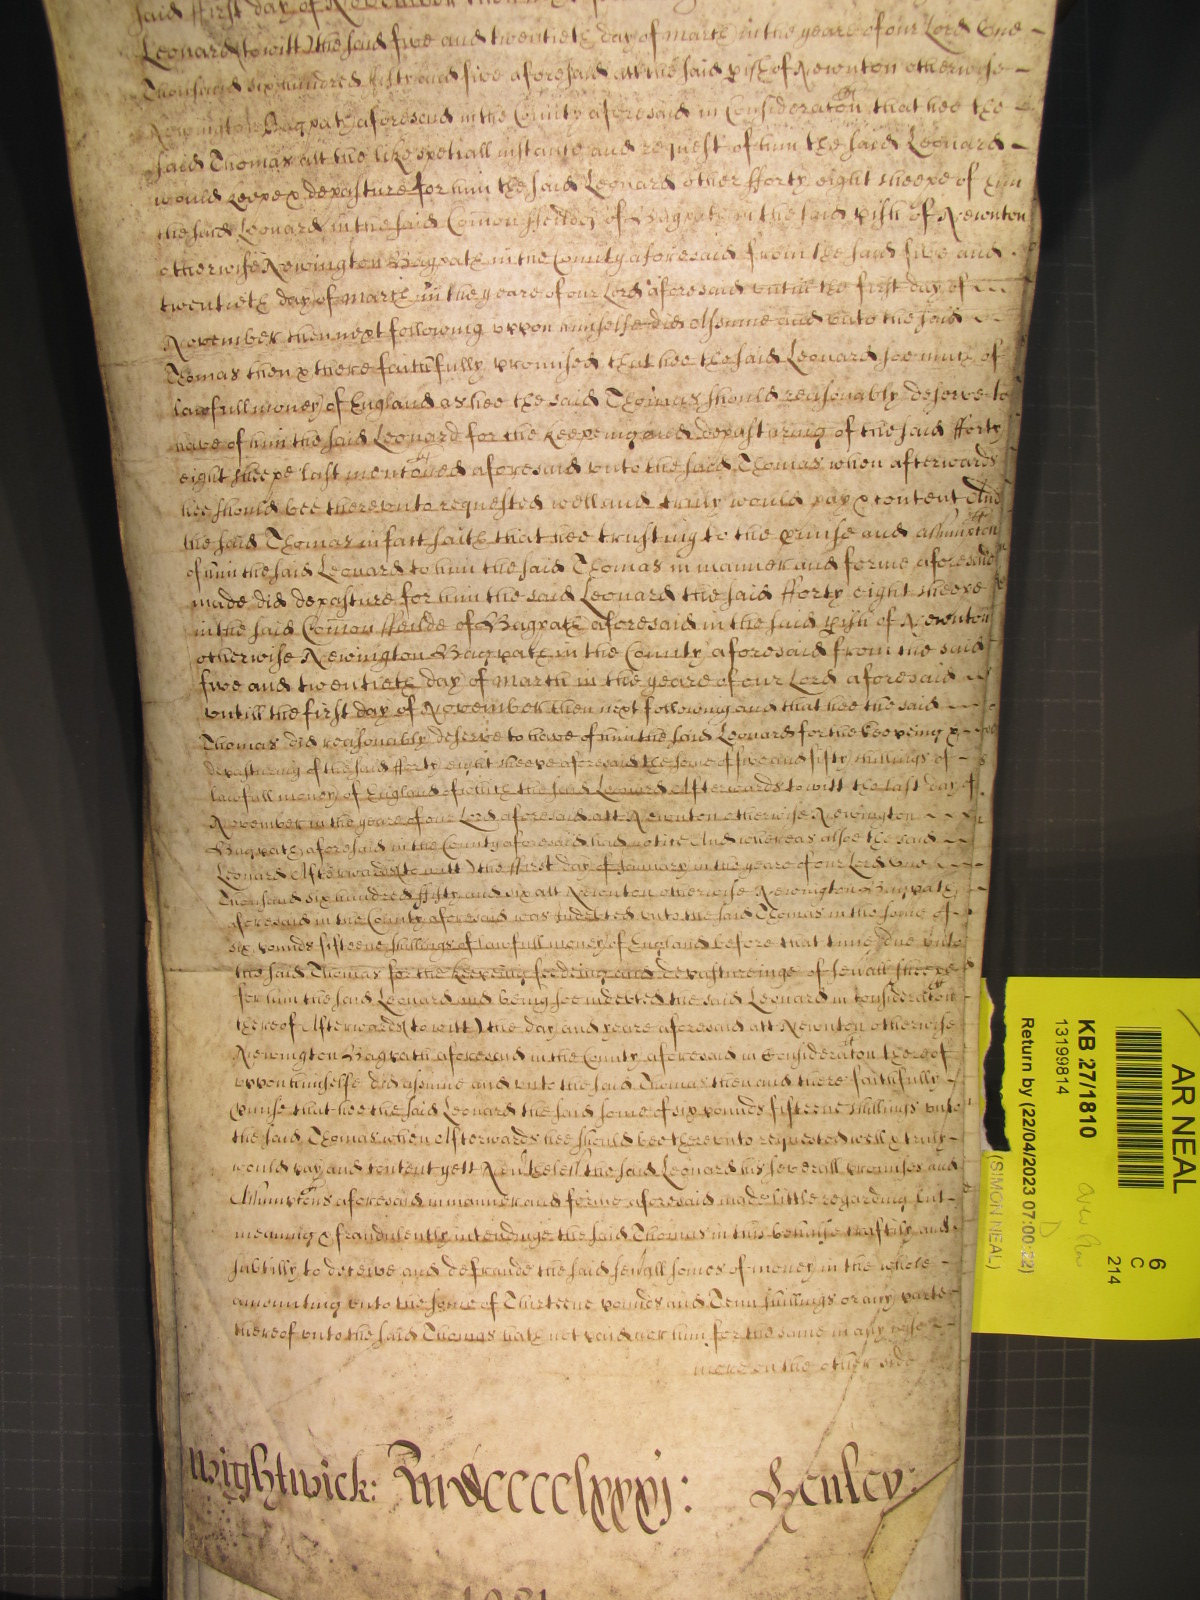 said ffirst day of November then next
Leonard (to witt) the said five and twentieth day of March in the yeare of our Lord One
Thousand six hundred fifty and five aforesaid att the said pish of Newnton otherwise
Newington Bagpath aforesaid in the County aforesaid in Consideraton that hee the
said Thomas att the like speciall instance and request of him the said Leonard
would keepe & depasture for him the said Leonard other fforty eight sheepe of him
the said Leonard in the said Comon ffeildes of Bagpath in the said pish of Newnton
otherwise Newington Bagpath in the County aforesaid from the said five and
twentieth day of March in the yeare of our Lord aforesaid untill the first day of
November then next following uppon himselfe did assume and unto the said
Thomas then & there faithfully promised that hee the said Leonard soe much of
lawfull money of England as hee the said Thomas should reasonably deserve to
have of him the said Leonard for the keepeing and depasturing of the said fforty
eight sheepe last mentoned aforesaid unto the said Thomas when afterwards
hee should bee thereunto requested well and truly would pay & content And
the said Thomas in fact saith that hee trusting to the pmise and assumpton
of him the said Leonard to him the said Thomas in manner and forme aforesaid
made did depasture for him the said Leonard the said fforty eight sheepe
in the said Comon ffeilde of Bagpath aforesaid in the said pish of Newnton
otherwise Newington Bagpath in the County aforesaid from the said
five and twentieth day of March in the yeare of our Lord aforesaid
untill the first day of November then next following and that hee the said
Thomas did reasonably deserve to have of him the said Leonard for the keepeing &
depasturing of the said fforty eight sheepe aforesaid the some of five and fifty shillings of
lawfull money of England of which the said Leonard Afterwards to witt the last day of
November in the yeare of our Lord aforesaid att Newnton otherwise Newington
Bagpath aforesaid in the County aforesaid had notice And whereas alsoe the said
Leonard Afterwards (to witt) the ffirst day of January in the yeare of our Lord One
Thousand six hundred ffifty and six att Newnton otherwise Newington Bagpath
aforesaid in the County aforesaid was Indebted unto the said Thomas in the some of
six pounds fifteene shillings of lawfull money of England before that time due unto
the said Thomas for the keepeing feedeing and depastureinge of sevall sheepe
for him the said Leonard and being soe indebted the said Leonard in consideraton
thereof Afterwards (to witt) the day and yeare aforesaid att Newnton otherwise
Newington Bagpath aforesaid in the County aforesaid in Consideraton thereof
uppon himselfe did assume and unto the said Thomas then and there faithfully
pmise that hee the said Leonard the said some of six pounds fifteene shillings unto
the said Thomas when Afterwards hee should bee thereunto requested well & truly
would pay and content yett Nevthelesse the said Leonard his severall promises and
Assumptons aforesaid in manner and forme aforesaid made little regarding but
meaning & fraudulently intendinge the said Thomas in this behalfe craftily and
subtilly to deceive and defraude the said sevall somes of money in the whole
amounting unto the some of Thirteene pounds and Tenn shillings or any parte
thereof unto the said Thomas hath not paid nor him for the same in any wise
more on the other side
Wightwick: Rmdccccclxxxj: Henley:
1981
AR NEAL
6
C
214
KB 27/1810
13199814
Return by (22/04/2023 07:00:22)
(SIMON NEAL)